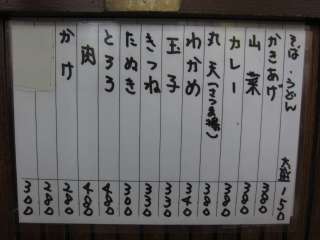 そば・うどん 大盛150
かきあげ 380
山菜 380
カレー 380
丸天(さつま揚) 380
わかめ 340
玉子 330
きつね 330
たぬき 300
とろろ 480
肉 480
かけ 280
280
300